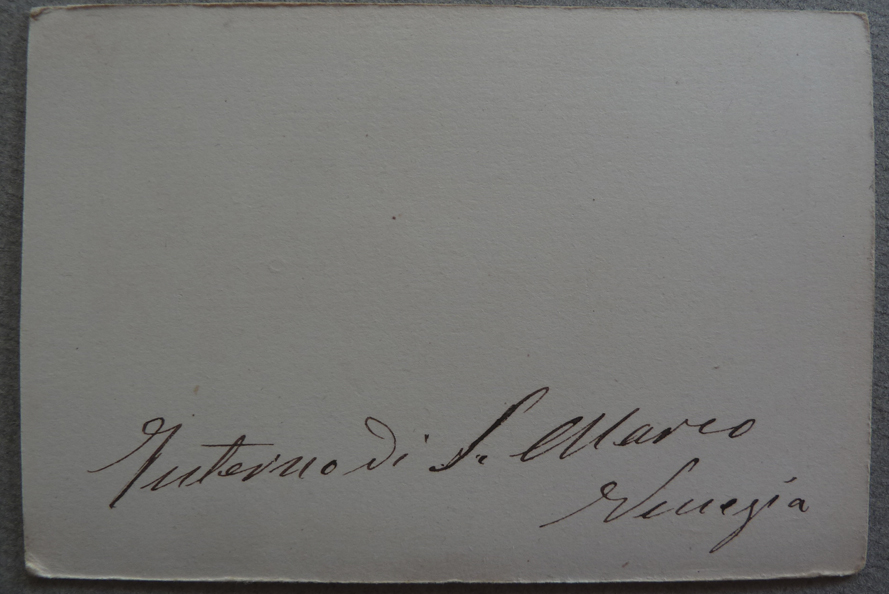 Interno di S. Marco
Venezia